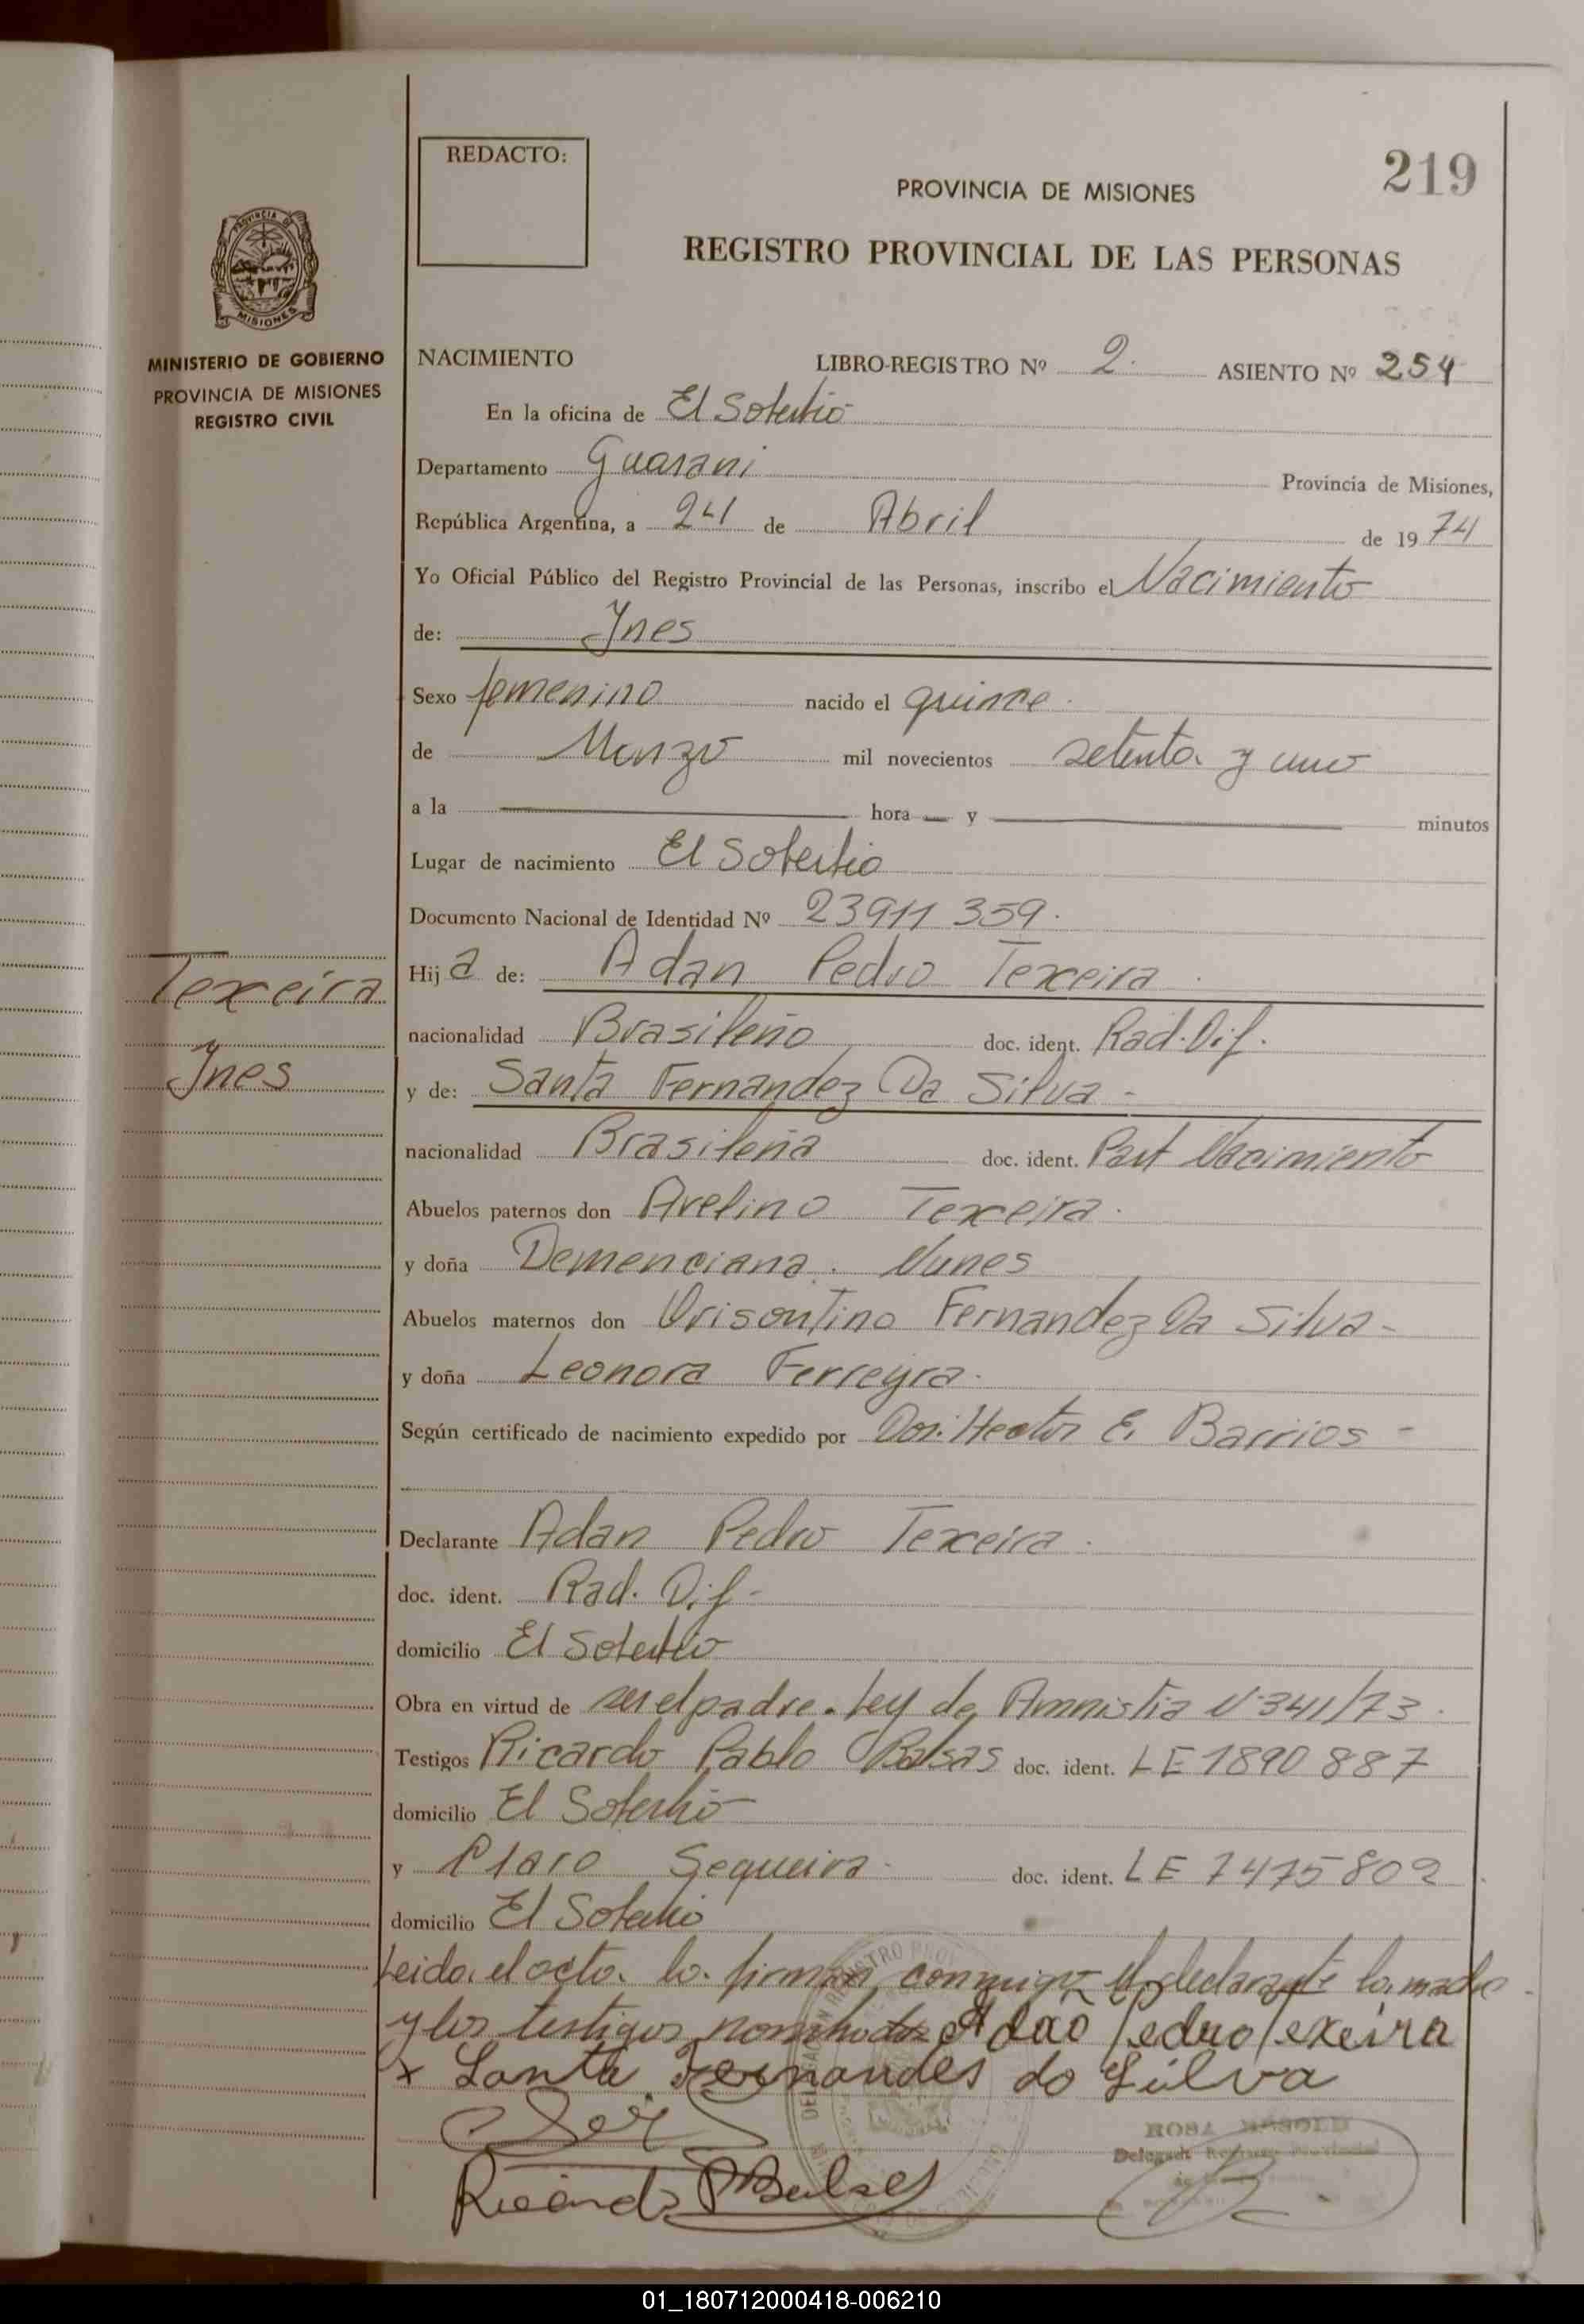 REDACTO:
219
PROVINCIA DE MISIONES
REGISTRO PROVINCIAL DE LAS PERSONAS
PROVINCIA DE
MISIONES
MINISTERIO DE GOBIERNO
PROVINCIA DE MISIONES
REGISTRO CIVIL
NACIMIENTO LIBRO-REGISTRO Nº 2. ASIENTO Nº 254
En la oficina de El Soberbio
Departamento Guarani Provincia de Misiones,
República Argentina, a 24 de Abril de 1974
Yo Oficial Público del Registro Provincial de las Personas, inscribo el Nacimiento
de: Ynes
Sexo femenino nacido el quince
de Marzo mil novecientos setenta y uno
a la hora y minutos
Lugar de nacimiento El Soberbio
Documento Nacional de Identidad Nº 23911 359.
Texeira
Ynes
Hija de: Adan Pedro Texeira
nacionalidad Brasileño doc. ident. Rad. Dif.
y de: Santa Fernandez Da Silva -
nacionalidad Brasileña doc. ident. Part Nacimiento
Abuelos paternos don Avelino Texeira.
y doña Demenciana. Nunes
Abuelos maternos don Orisontino Fernandez Da Silva -
y doña Leonora Ferreyra.
Según certificado de nacimiento expedido por Dor. Hector E. Barrios -
Declarante Adan Pedro Texeira.
doc. ident. Rad. Dif -
domicilio El Soberbio
Obra en virtud de ser el padre. Ley de Amnistia Nº 341/73.
Testigos Ricardo Pablo Balsas doc. ident. LE 1890 887
domicilio El Soberbio
y Claro Sequeira. doc. ident. LE 7475802
domicilio El Soberbio
Leida el acta la firman conmigo el declarante la madre
y los testigos nombrados Adaõ Pedro Texeira
x Santa Fernandes do Silva
Ricardo P Balsas
ROSA
01_180712000418-006210